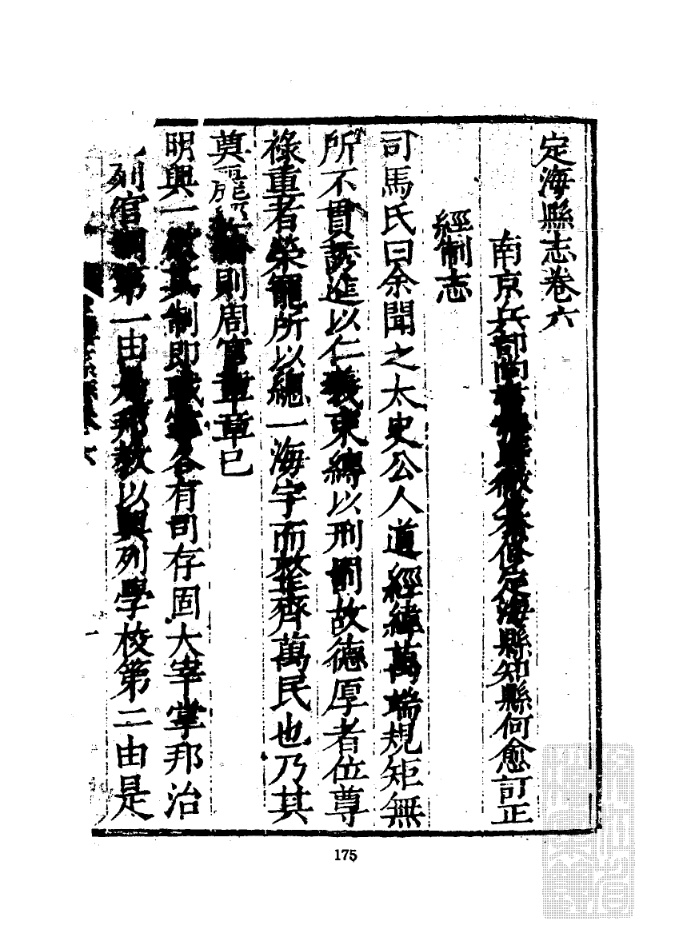 定海縣志卷六
南京兵部尚書 修定海縣知縣何愈訂正
經制志
司馬氏曰余聞之太史公人道經緯萬端規矩無
所不貫誘進以仁義束縛以刑罰故德厚者位尊
祿重者榮寵所以總一海宇而整齊萬民也乃其
奠麗 則周官章章已
明興一 其制即職 各有司存固大宰掌邦治
列官 第一由是邦教以興列學校第二由是
175